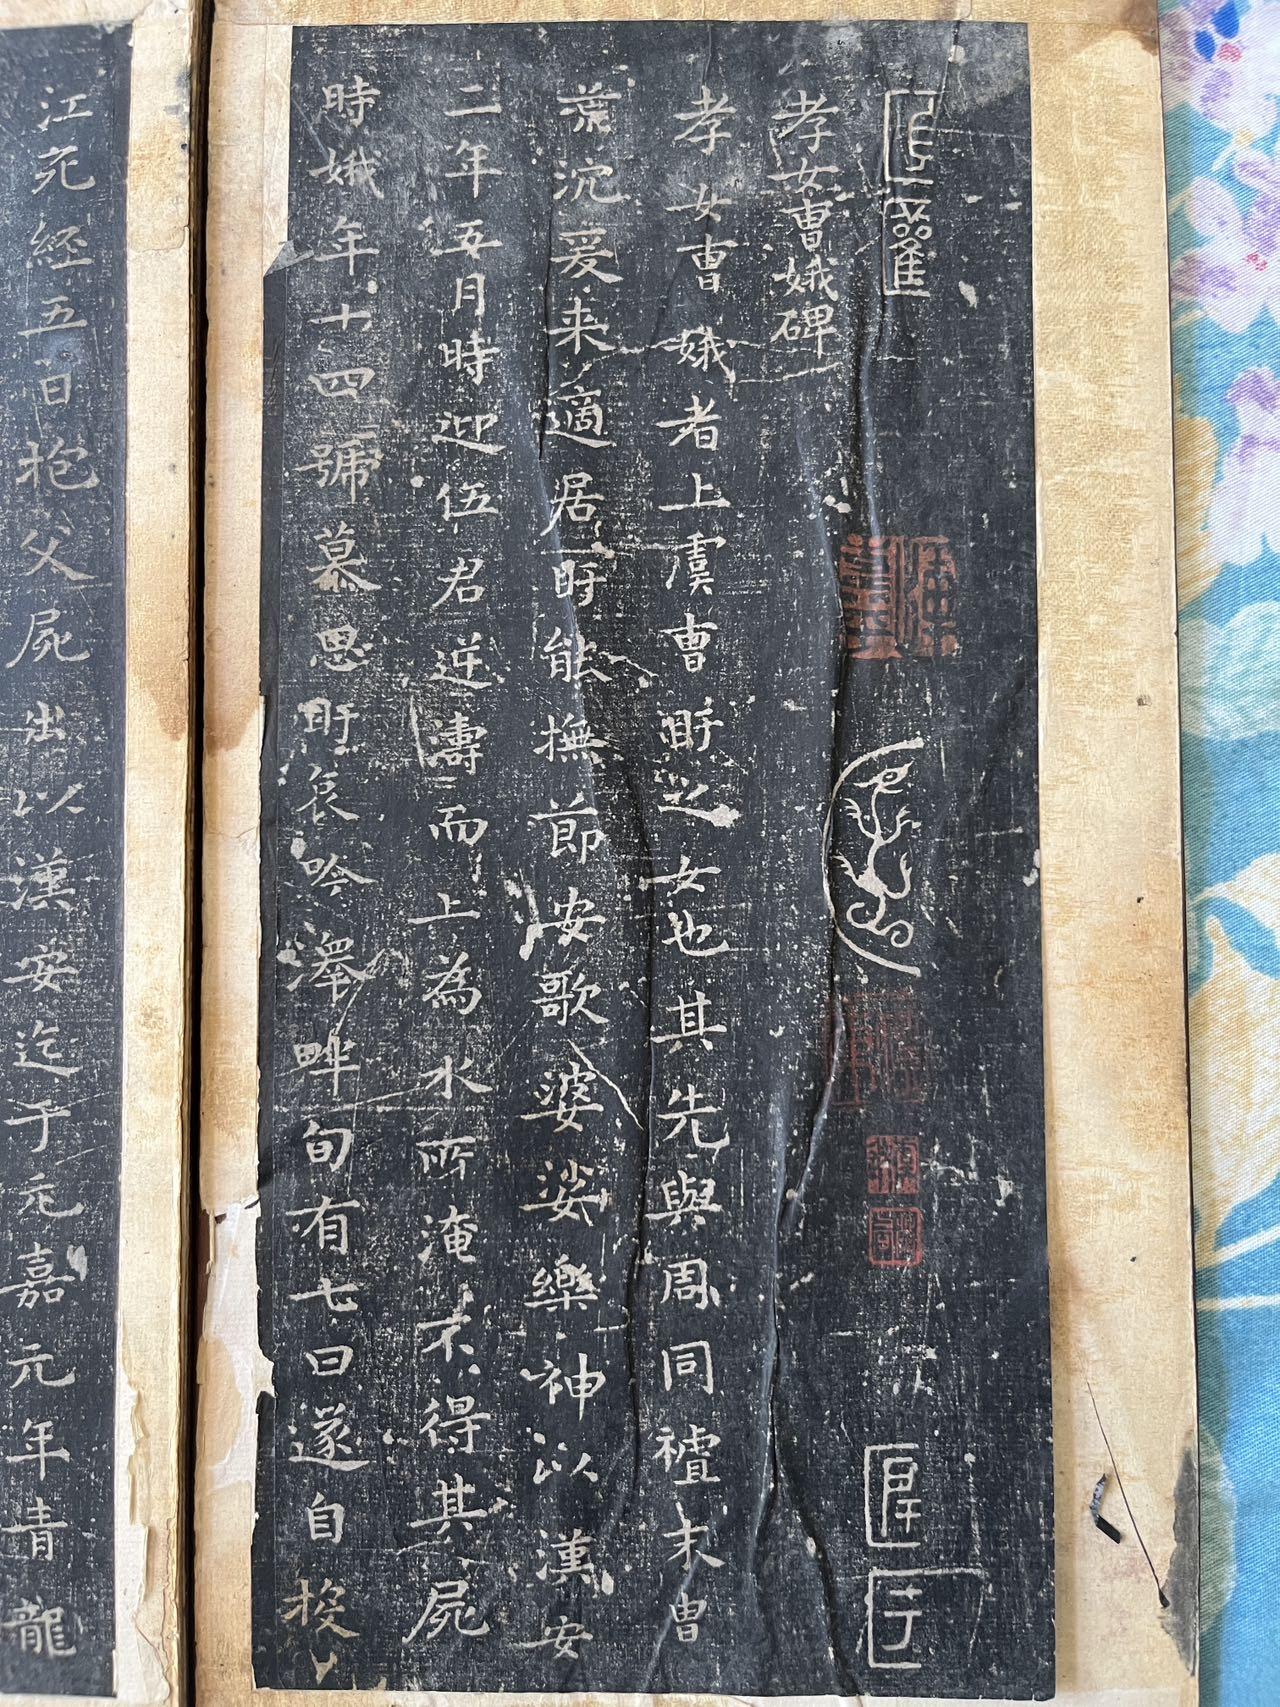 孝女曹娥碑
孝女曹娥者上虞曹盱之女也其先與周同禮末胄
荒沉爰来適居盱能撫節安歌婆娑樂神以漢安
二年五月時迎伍君逆濤而上為水所淹不得其屍
時娥年十四號慕思盱哀吟澤畔旬有七日遂自投
江死經五日抱父屍出以漢安迄于元嘉元年青龍